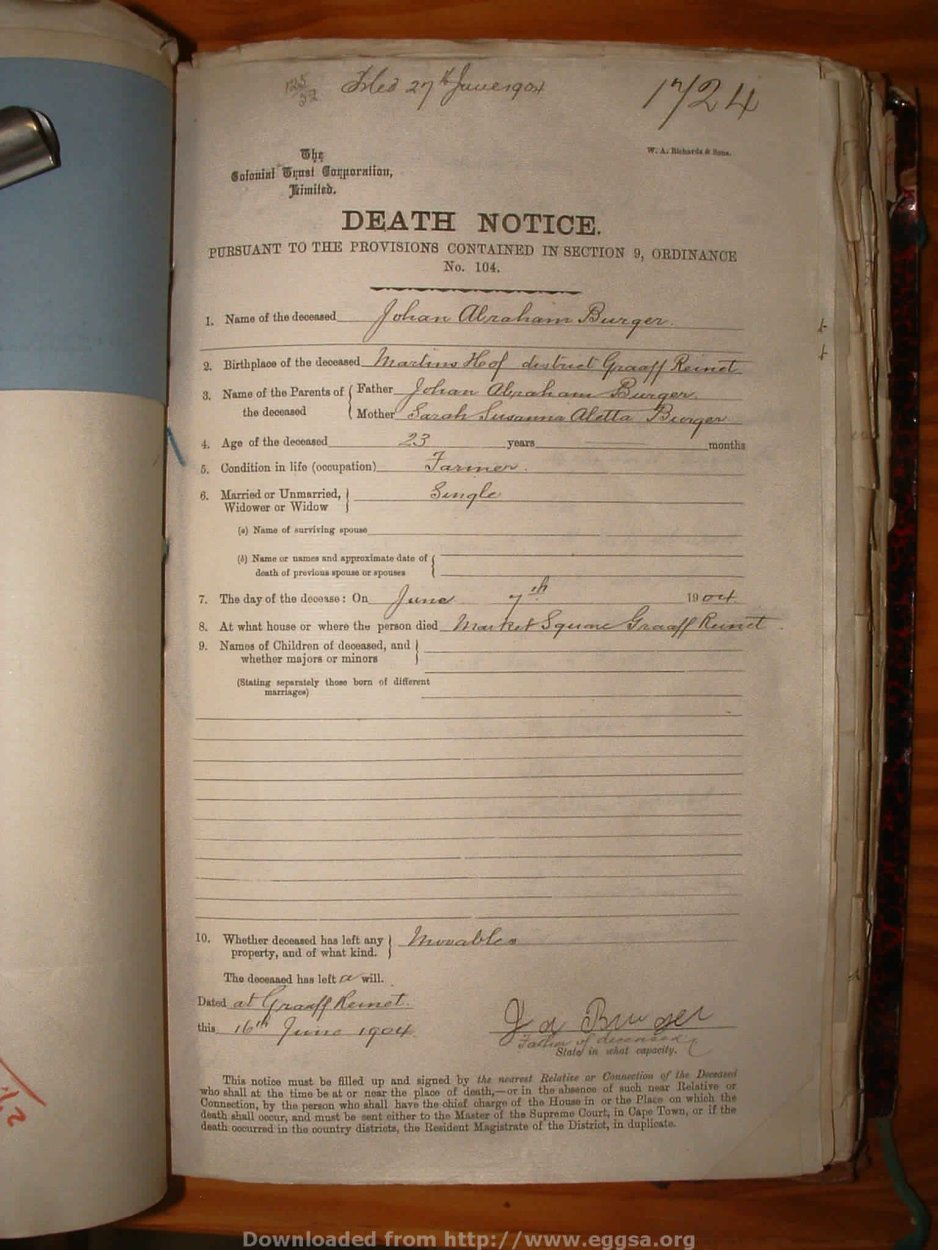 125
32
Filed 27th June 1904
1724
W. A. Richards & Sons.
The
Colonial Trust Corporation,
Limited.
DEATH NOTICE.
PURSUANT TO THE PROVISIONS CONTAINED IN SECTION 9, ORDINANCE
No. 104.
1. Name of the deceased Johan Abraham Burger.
2. Birthplace of the deceased Martins Hof district Graaff Reinet
3. Name of the Parents of the deceased { Father Johan Abraham Burger
Mother Sarah Susanna Aletta Burger
4. Age of the deceased 23 years months
5. Condition in life (occupation) Farmer.
6. Married or Unmarried, } Single
Widower or Widow
(a) Name of surviving spouse
(b) Name or names and approximate date of {
death of previous spouse or spouses
7. The day of the decease: On June 7th 1904
8. At what house or where the person died Market Square Graaff Reinet.
9. Names of Children of deceased, and }
whether majors or minors
(Stating separately those born of different
marriages)
10. Whether deceased has left any } Movables
property, and of what kind.
The deceased has left a will.
Dated at Graaff Reinet.
this 16th June 1904
J A Burger
Father of deceased
State in what capacity.
This notice must be filled up and signed by the nearest Relative or Connection of the Deceased
who shall at the time be at or near the place of death,—or in the absence of such near Relative or
Connection, by the person who shall have the chief charge of the House in or the Place on which the
death shall occur, and must be sent either to the Master of the Supreme Court, in Cape Town, or if the
death occurred in the country districts, the Resident Magistrate of the District, in duplicate.
Downloaded from http://www.eggsa.org